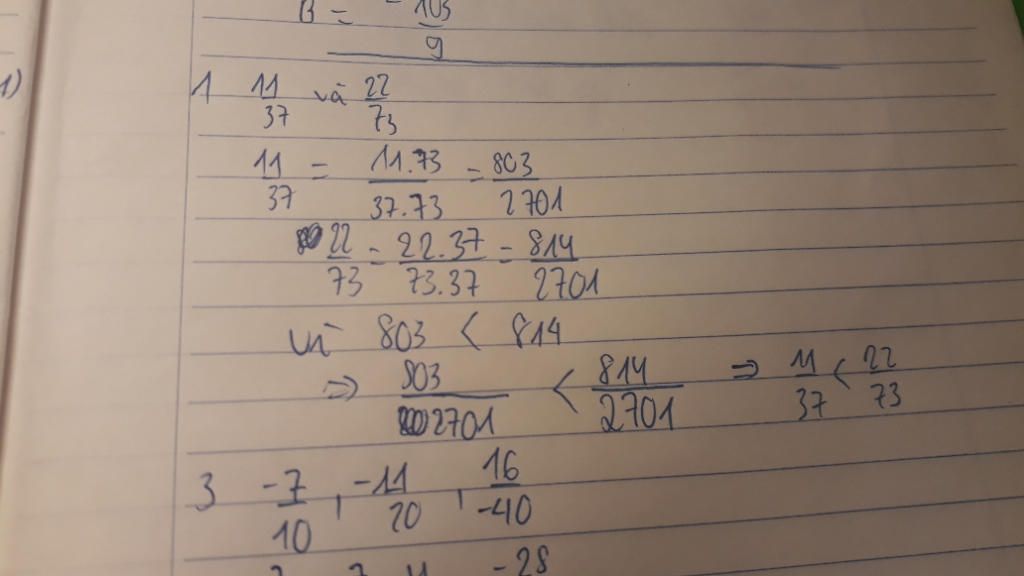 B = -103/9
1)
1 11/37 và 22/73
11/37 = 11.73/37.73 = 803/2701
22/73 = 22.37/73.37 = 814/2701
Vì 803 < 814
=> 803/2701 < 814/2701 => 11/37 < 22/73
3 -7/10 , -11/20 , 16/-40
-28